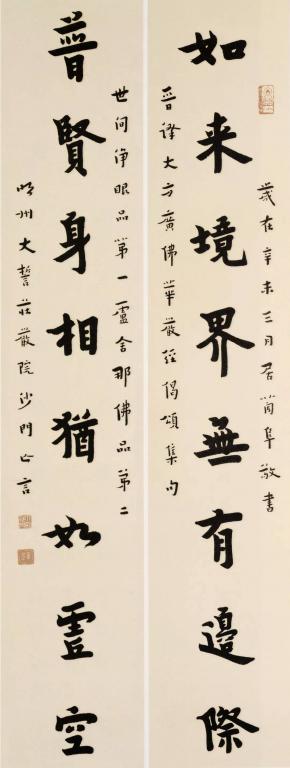 歲在辛未三月居箇阜敬書
如来境界無有邊際
晉譯大方廣佛華嚴經偈頌集句
普賢身相猶如虛空
世间淨眼品第一盧舍那佛品第二
明州大誓莊嚴院沙門亡言